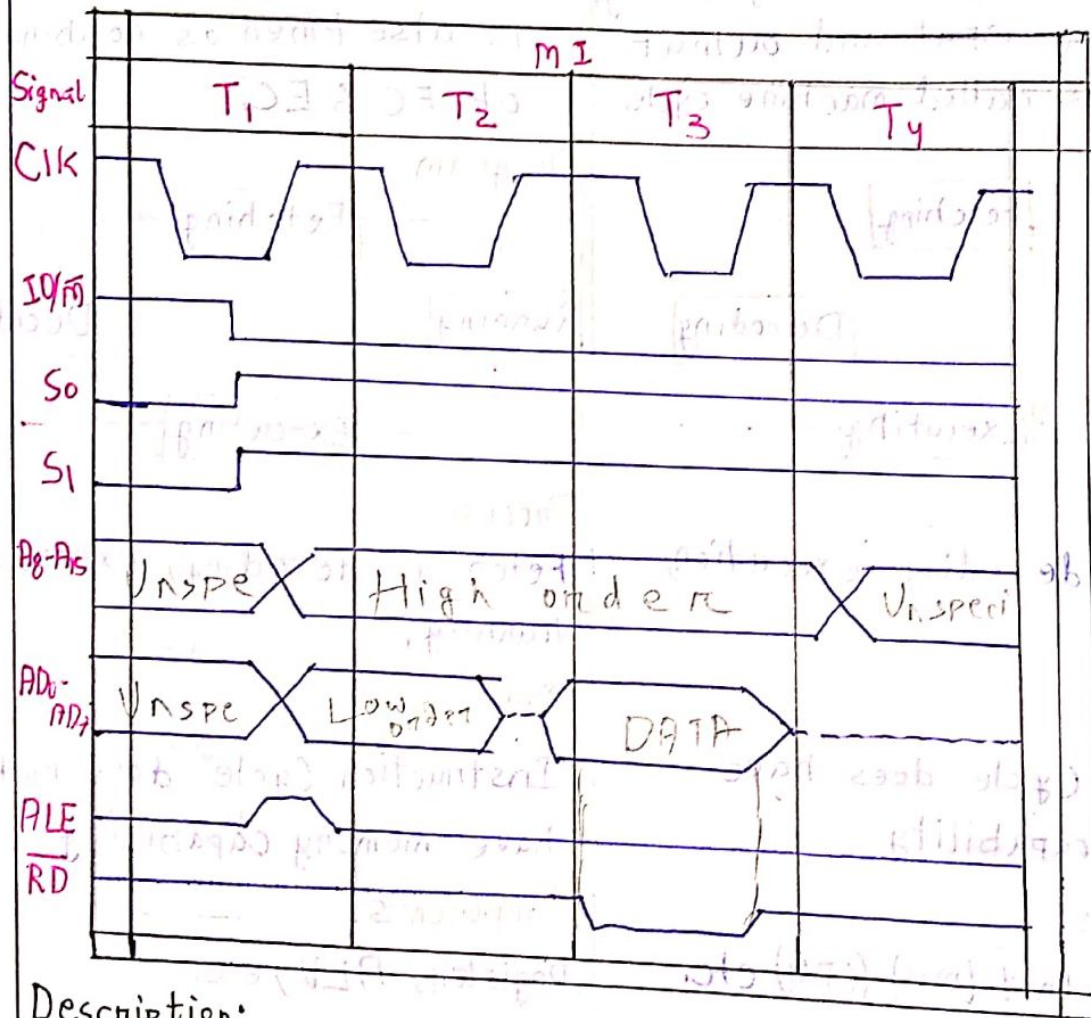 M I
Signal T1 T2 T3 T4
Clk
IO/M̅
S0
S1
A8-A15 Unspe High order Unspeci
AD0-AD7 Unspe Low order DATA
ALE
R̅D̅
Description: